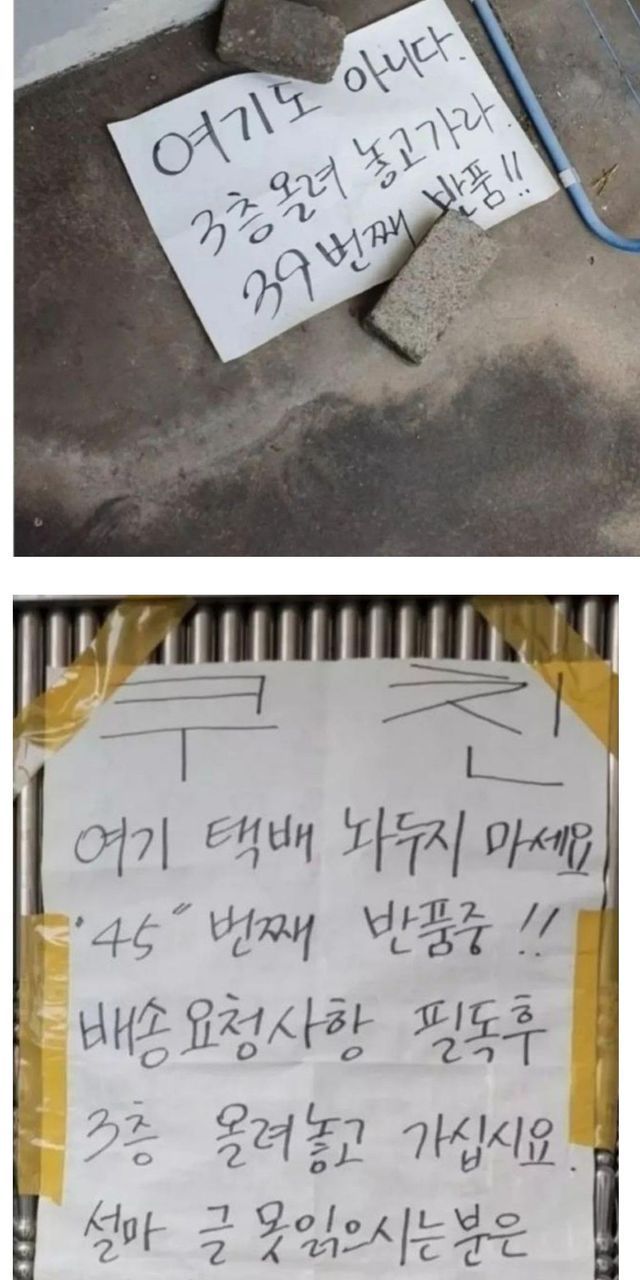 여기도 아니다.
3층올려 놓고가라.
39번째 반품!!
쿠 친
여기 택배 놔두지 마세요
"45" 번째 반품중 !!
배송요청사항 필독후
3층 올려놓고 가십시요.
설마 글 못읽으시는분은